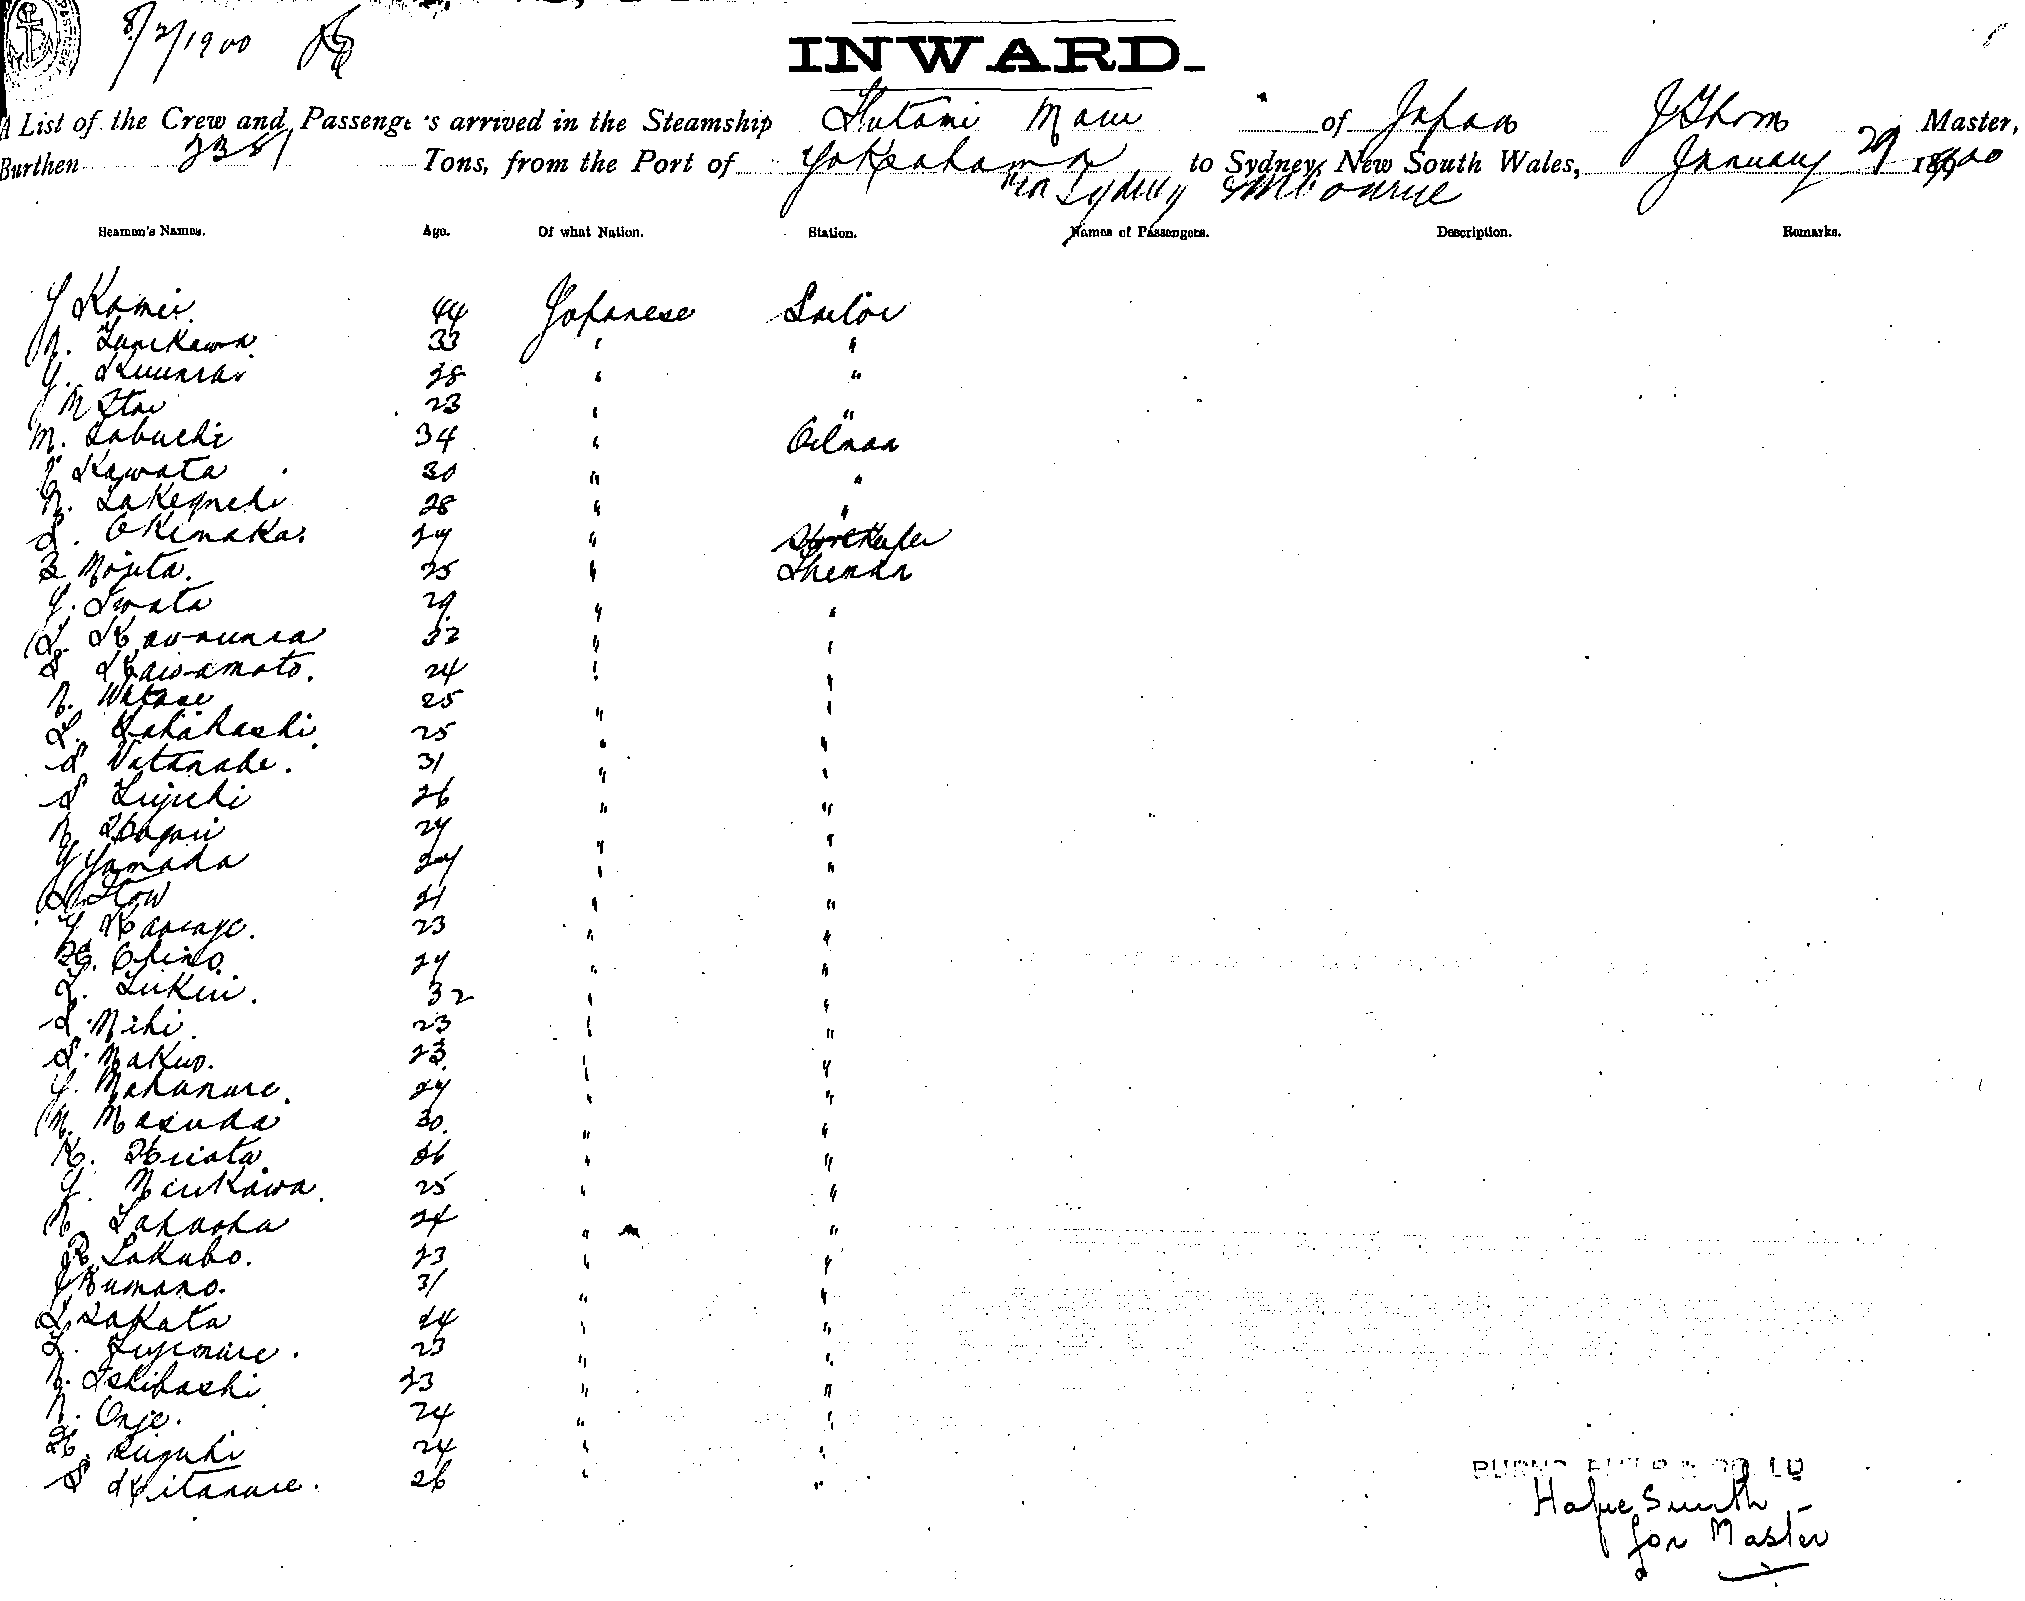 8/2/1900
INWARD.
A List of the Crew and Passenge's arrived in the Steamship Futami Maru of Japan J Thom Master,
Burthen Tons, from the Port of Yokohama to Sydney, New South Wales, January 29 1900
via Sydney & Melbourne
Seamen's Names. Age. Of what Nation. Station. Names of Passengers. Description. Remarks.
Y Kamei. 44 Japanese Sailor
N. Tanikawa 33 " "
Y. Kimura 28 " "
N Itoi 23 " "
M. Tabuchi 34 " Oilman
Y Kawata 30 " "
N. Takeguchi 28 " "
S. Okinaka 29 " Storekeeper
Z Morita. 25 " Fireman
Y. Iwata 29 " "
T. Kawamura 32 " "
S Kawamoto. 24 " "
N. Watase 25 " "
T. Takahashi 25 " "
S Watanabe. 31 " "
S Fujichi 26 " "
N. Hagari 24 " "
Y Yamada 24 " "
Itow 21 " "
Y 23 " "
H. 24 " "
T. 32 " "
S. Nihi 23 " "
S. Nakao. 23 " "
Y. Nakamura. 24 " "
N. Masuda 30 " "
K. Hirata 26 " "
Y. Narikawa 25 " "
N. Takaoka 24 " "
R. Takubo. 23 " "
J Kumano. 31 " "
T. Takata 24 " "
T. Fujimura. 23 " "
N. Ishibashi 23 " "
N. Onje. 24 " "
H. Suzuki 24 " "
S Kitamura. 26 " "
BURNS PHILP & CO. LD
Smith
for Master